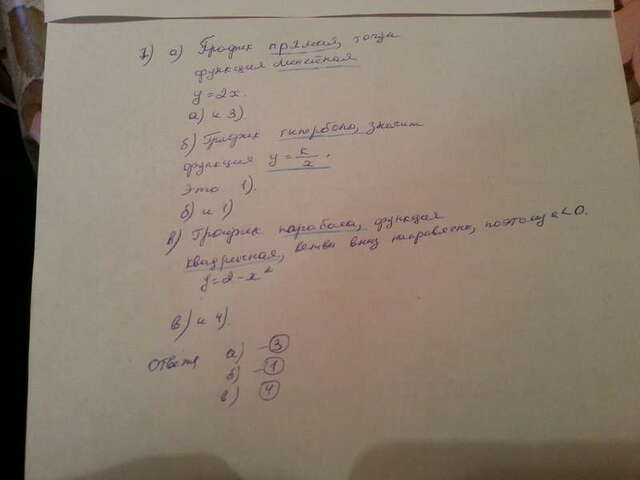 7) а) График прямая, тогда
функция линейная
y = 2x.
а) и 3)
б) График гипербола, значит
функция y = k/x.
Это 1).
б) и 1)
в) График парабола, функция
квадратичная, ветви вниз направлены, поэтому a < 0.
y = 2 - x²
в) и 4).
Ответ: а) - 3
б) - 1
в) 4